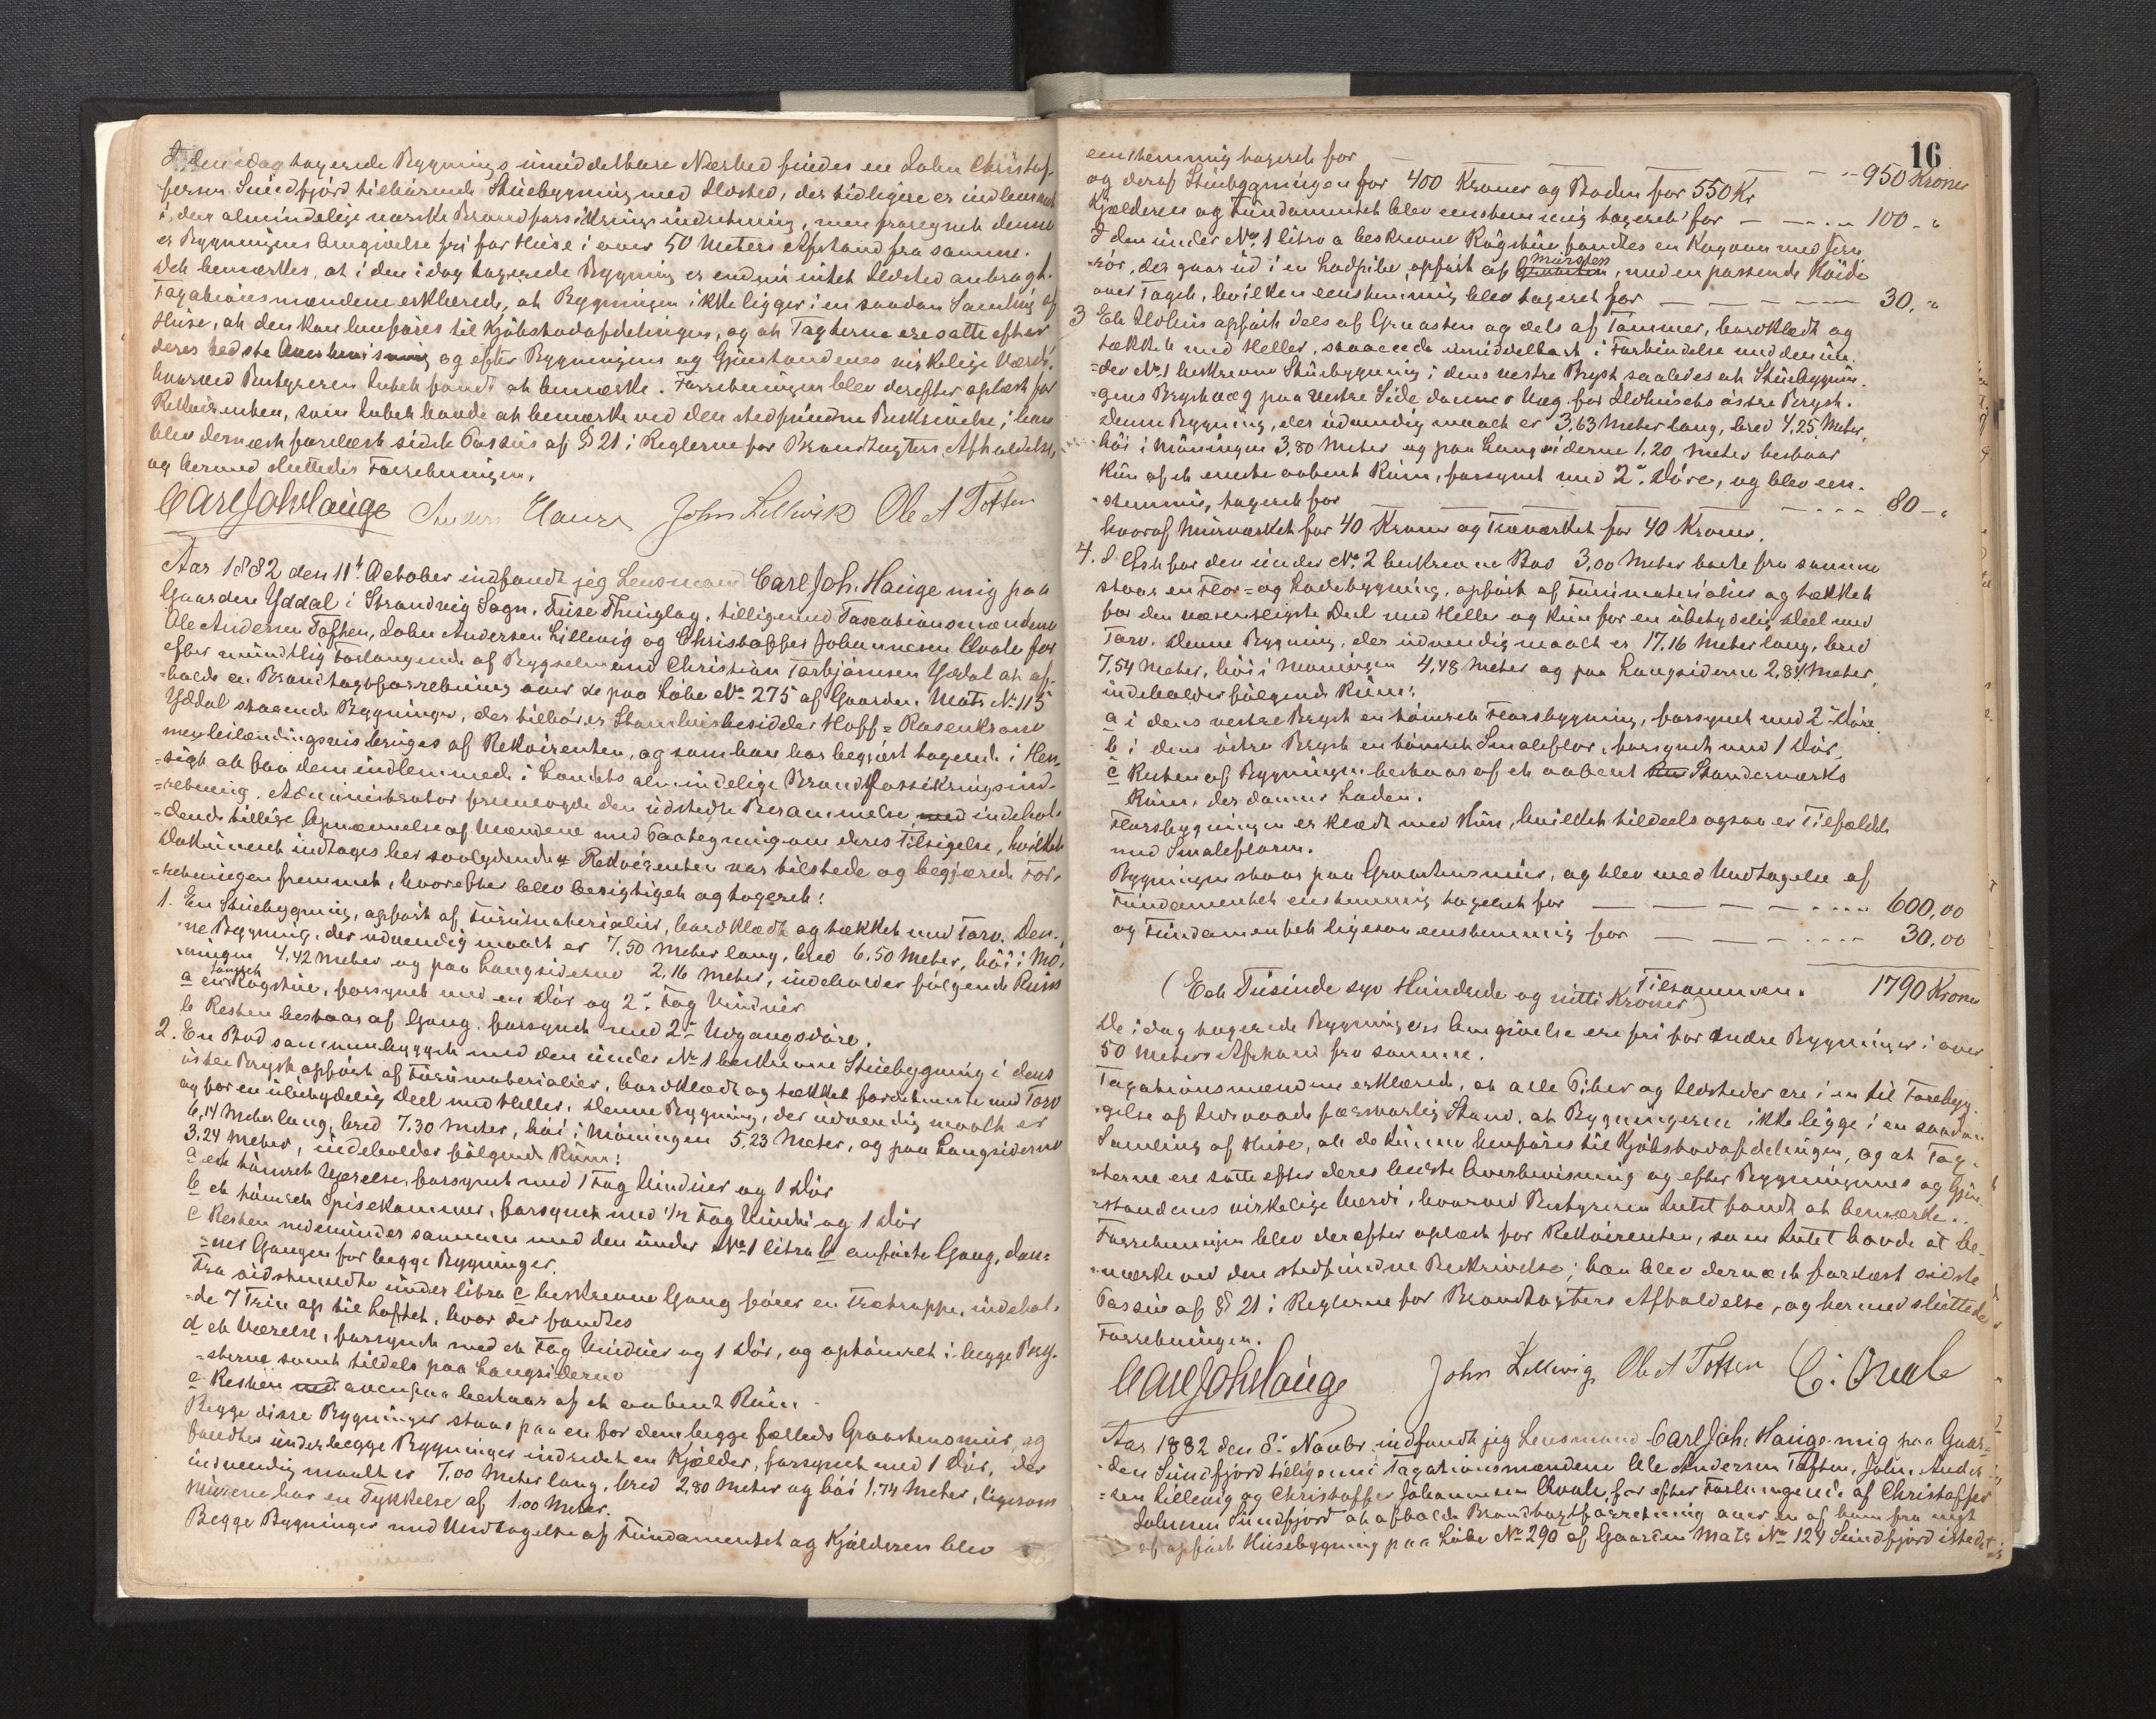 I den idag taxerede Bygnings umiddelbare Nærhed findes en John Christof-
fersen Sundfjord tilhørende Stuebygning med Ildsted, der tidligere er indlemmet
i den almindelige norske Brandforsikringsindretning, men fraregnet denne
er Bygningens Omgivelse fri for Huse i over 50 Meters Afstand fra samme.
Det bemærkes, at i den idag taxerede Bygning er endnu intet Ildsted anbragt.
Taxationsmændene erklærede, at Bygningen ikke ligger i en saadan Samling af
Huse, at den kan henføres til Kjøbstadafdelingen, og at Taxterne ere satte efter
deres bedste Overbevisning og efter Bygningens og Gjenstandenes virkelige Værdi,
hvorved Bestyreren Intet fandt at bemærke. Forretningen blev derefter oplæst for
Rekvirenten, som Intet havde at bemærke ved den stedfundne Beskrivelse; han
blev dernæst forelæst sidste Passus af § 21 i Reglerne for Brandtaxters Afholdelse,
og hermed sluttedes Forretningen.
Carl Joh Hauge Anders Hauge John Lillevik Ole A Toften
Aar 1882 den 11te October indfandt jeg Lensmand Carl Joh. Hauge mig paa
Gaarden Yddal i Strandvig Sogn, Fuse Thinglag, tilligemed Taxationsmændene
Ole Andersen Toften, John Andersen Lillevig og Christoffer Johannesen Ovale for
efter mundtlig Forlangende af Bygselmand Christian Torbjørnsen Yddal at af-
=holde en Brandtaxtforretning over de paa Løbe No 275 af Gaarden Matr. No 115
Yddal staaende Bygninger, der tilhører Stamhusbesidder Hoff=Rosenkrone
men leilændingsvis bruges af Rekvirenten, og som han har begjært taxerede i Hen-
=sigt at faa dem indlemmede i Landets almindelige Brandforsikringsind-
=retning. Administrator fremlagde den udstedte Berammelse med indehol-
=dende tillige Opnævnelse af Mændene med Paategning om deres Tilsigelse, hvilket
Dokument indtages her saalydende. Rekvirenten var tilstede og begjærede For-
=retningen fremmet, hvorefter blev besigtiget og taxeret:
1. En Stuebygning, opført af Furumaterialier, bordklædt og tækket med Torv. Den-
ne Bygning, der udvendig maalt er 7,50 Meter lang, bred 6,50 Meter, høi i Mø-
ningen 4,42 Meter og paa Langsiderne 2,16 Meter, indeholder følgende Rum
a en tømret Røgstue, forsynet med en Dør og 2de Fag Vinduer
b Resten bestaar af Gang, forsynet med 2de Udgangsdøre.
2. En Bod sammenbygget med den under No 1 beskrevne Stuebygning i dens
østre Bryst, opført af Furumaterialier, bordklædt og tækket fordetmeste med Torv
og for en ubetydelig Deel med Heller. Denne Bygning, der udvendig maalt er
6,14 Meter lang, bred 7,30 Meter, høi i Møningen 5,23 Meter, og paa Langsiderne
3,24 Meter, indeholder følgende Rum:
a et tømret Værelse, forsynet med 1 Fag Vinduer og 1 Dør
b et tømret Spisekammer, forsynet med 1/2 Fag Vindu og 1 Dør
c Resten nedenunder sammen med den under No 1 litra b anførte Gang, dan-
=ner Gangen for begge Bygninger.
Fra sidstnævnte under litra c beskrevne Gang fører en Trætrappe, indehol-
de 7 Trin op til Loftet, hvor der fandtes
d et Værelse, forsynet med et Fag Vinduer og 1 Dør, og optømret i begge Bry-
=sterne samt tildels paa Langsiderne
e Resten ovenpaa bestaar af et aabent Rum.
Begge disse Bygninger staar paa en for dem begge fælleds Graastensmur, og
fandtes under begge Bygninger indredet en Kjelder, forsynet med 1 Dør, der
indvendig maalt er 7,00 Meter lang, bred 2,80 Meter og høi 1,74 Meter, ligesom
Murene har en Tykkelse af 1,00 Meter.
Begge Bygninger med Undtagelse af Fundamentet og Kjelderen blev
16
eenstemmig taxeret for — — — 950 Kroner
og deraf Stuebygningen for 400 Kroner og Boden for 550 Kr
Kjælderen og Fundamentet blev eenstemmig taxeret for — — 100 - "
I den under No 1 litra a beskrevne Røgstue fandtes en Kogovn med Jern-
-rør, der gaar ud i en Ladpibe, opført af Graasten mursten, med en passende Høide
over Taget, hvilken eenstemmig blev taxeret for — — — 30, "
3 Et Ildhus opført dels af Graasten og dels af Tømmer, bordklædt og
tækket med Heller, staaende umiddelbart i Forbindelse med den un-
=der No 1 beskrevne Stuebygning i dens vestre Bryst saaledes at Stuebygnin-
-gens Brystvæg paa vestre Side danner Væg for Ildhusets østre Bryst.
Denne Bygning, der udvendig maalt er 3,63 Meter lang, bred 4,25 Meter,
høi i Møningen 3,80 Meter og paa Langsiderne 1,20 Meter bestaar
kun af et eneste aabent Rum, forsynet med 2de Døre, og blev een-
-stemmig taxeret for — — — 80 - "
hvoraf Murværket for 40 Kroner og Træværket for 40 Kroner.
4. I Øst for den under No 2 beskrevne Bod 3,00 Meter borte fra samme
staar en Flor= og Ladebygning, opført af Furumaterialier og tækket
for den væsentligste Deel med Heller og kun for en ubetydelig Deel med
Torv. Denne Bygning, der udvendig maalt er 17,16 Meter lang, bred
7,54 Meter, høi i Møningen 4,48 Meter og paa Langsiderne 2,84 Meter,
indeholder følgende Rum:
a i dens vestre Bryst en tømret Florsbygning, forsynet med 2de Døre.
b i dens østre Bryst en tømret Smaleflor, forsynet med 1 Dør,
c Resten af Bygningen bestaar af et aabent Standerværks
Rum, der danner Laden.
Florsbygningen er klædt med Hun, hvilket tildeels ogsaa er Tilfældet
med Smalefloren.
Bygningen staar paa Graastensmur, og blev med Undtagelse af
Fundamentet eenstemmig taxeret for — — — — 600,00
og Fundamentet ligesaa eenstemmig for — — — 30,00
Tilsammen. 1790 Kroner
(Eet Tusinde syv Hundrede og nitti Kroner)
De idag taxerede Bygningers Omgivelse ere fri for andre Bygninger i over
50 Meters Afstand fra samme.
Taxationsmændene erklærede, at alle Piber og Ildsteder ere i en til Forebyg-
-gelse af Ildsvaade forsvarlig Stand, at Bygningerne ikke ligge i en saadan
Samling af Huse, at de kunne henføres til Kjøbstadafdelingen, og at Tax-
=terne ere satte efter deres bedste Overbevisning og efter Bygningernes og Gjen-
=standenes virkelige Værdi, hvorved Bestyreren Intet fandt at bemærke.
Forretningen blev derefter oplæst for Rekvirenten, som Intet havde at be-
=mærke ved den stedfundne Beskrivelse; han blev dernæst forelæst sidste
Passus af § 21 i Reglerne for Brandtaxters Afholdelse, og hermed sluttedes
Forretningen.
Carl Joh Hauge John Lillevig Ole A Toften C. Ovale
Aar 1882 den 8de Novbr indfandt jeg Lensmand Carl Joh. Hauge mig paa Gaar-
-den Sundfjord tilligemed Taxationsmændene Ole Andersen Toften, John Ander-
=sen Lillevig og Christoffer Johannesen Ovale, for efter Forlangende af Christoffer
Johnsen Sundfjord at afholde Brandtaxtforretning over en af ham fra nyt
af opført Husebygning paa Løbe No 290 af Gaarden Matr No 124 Sundfjord istedet